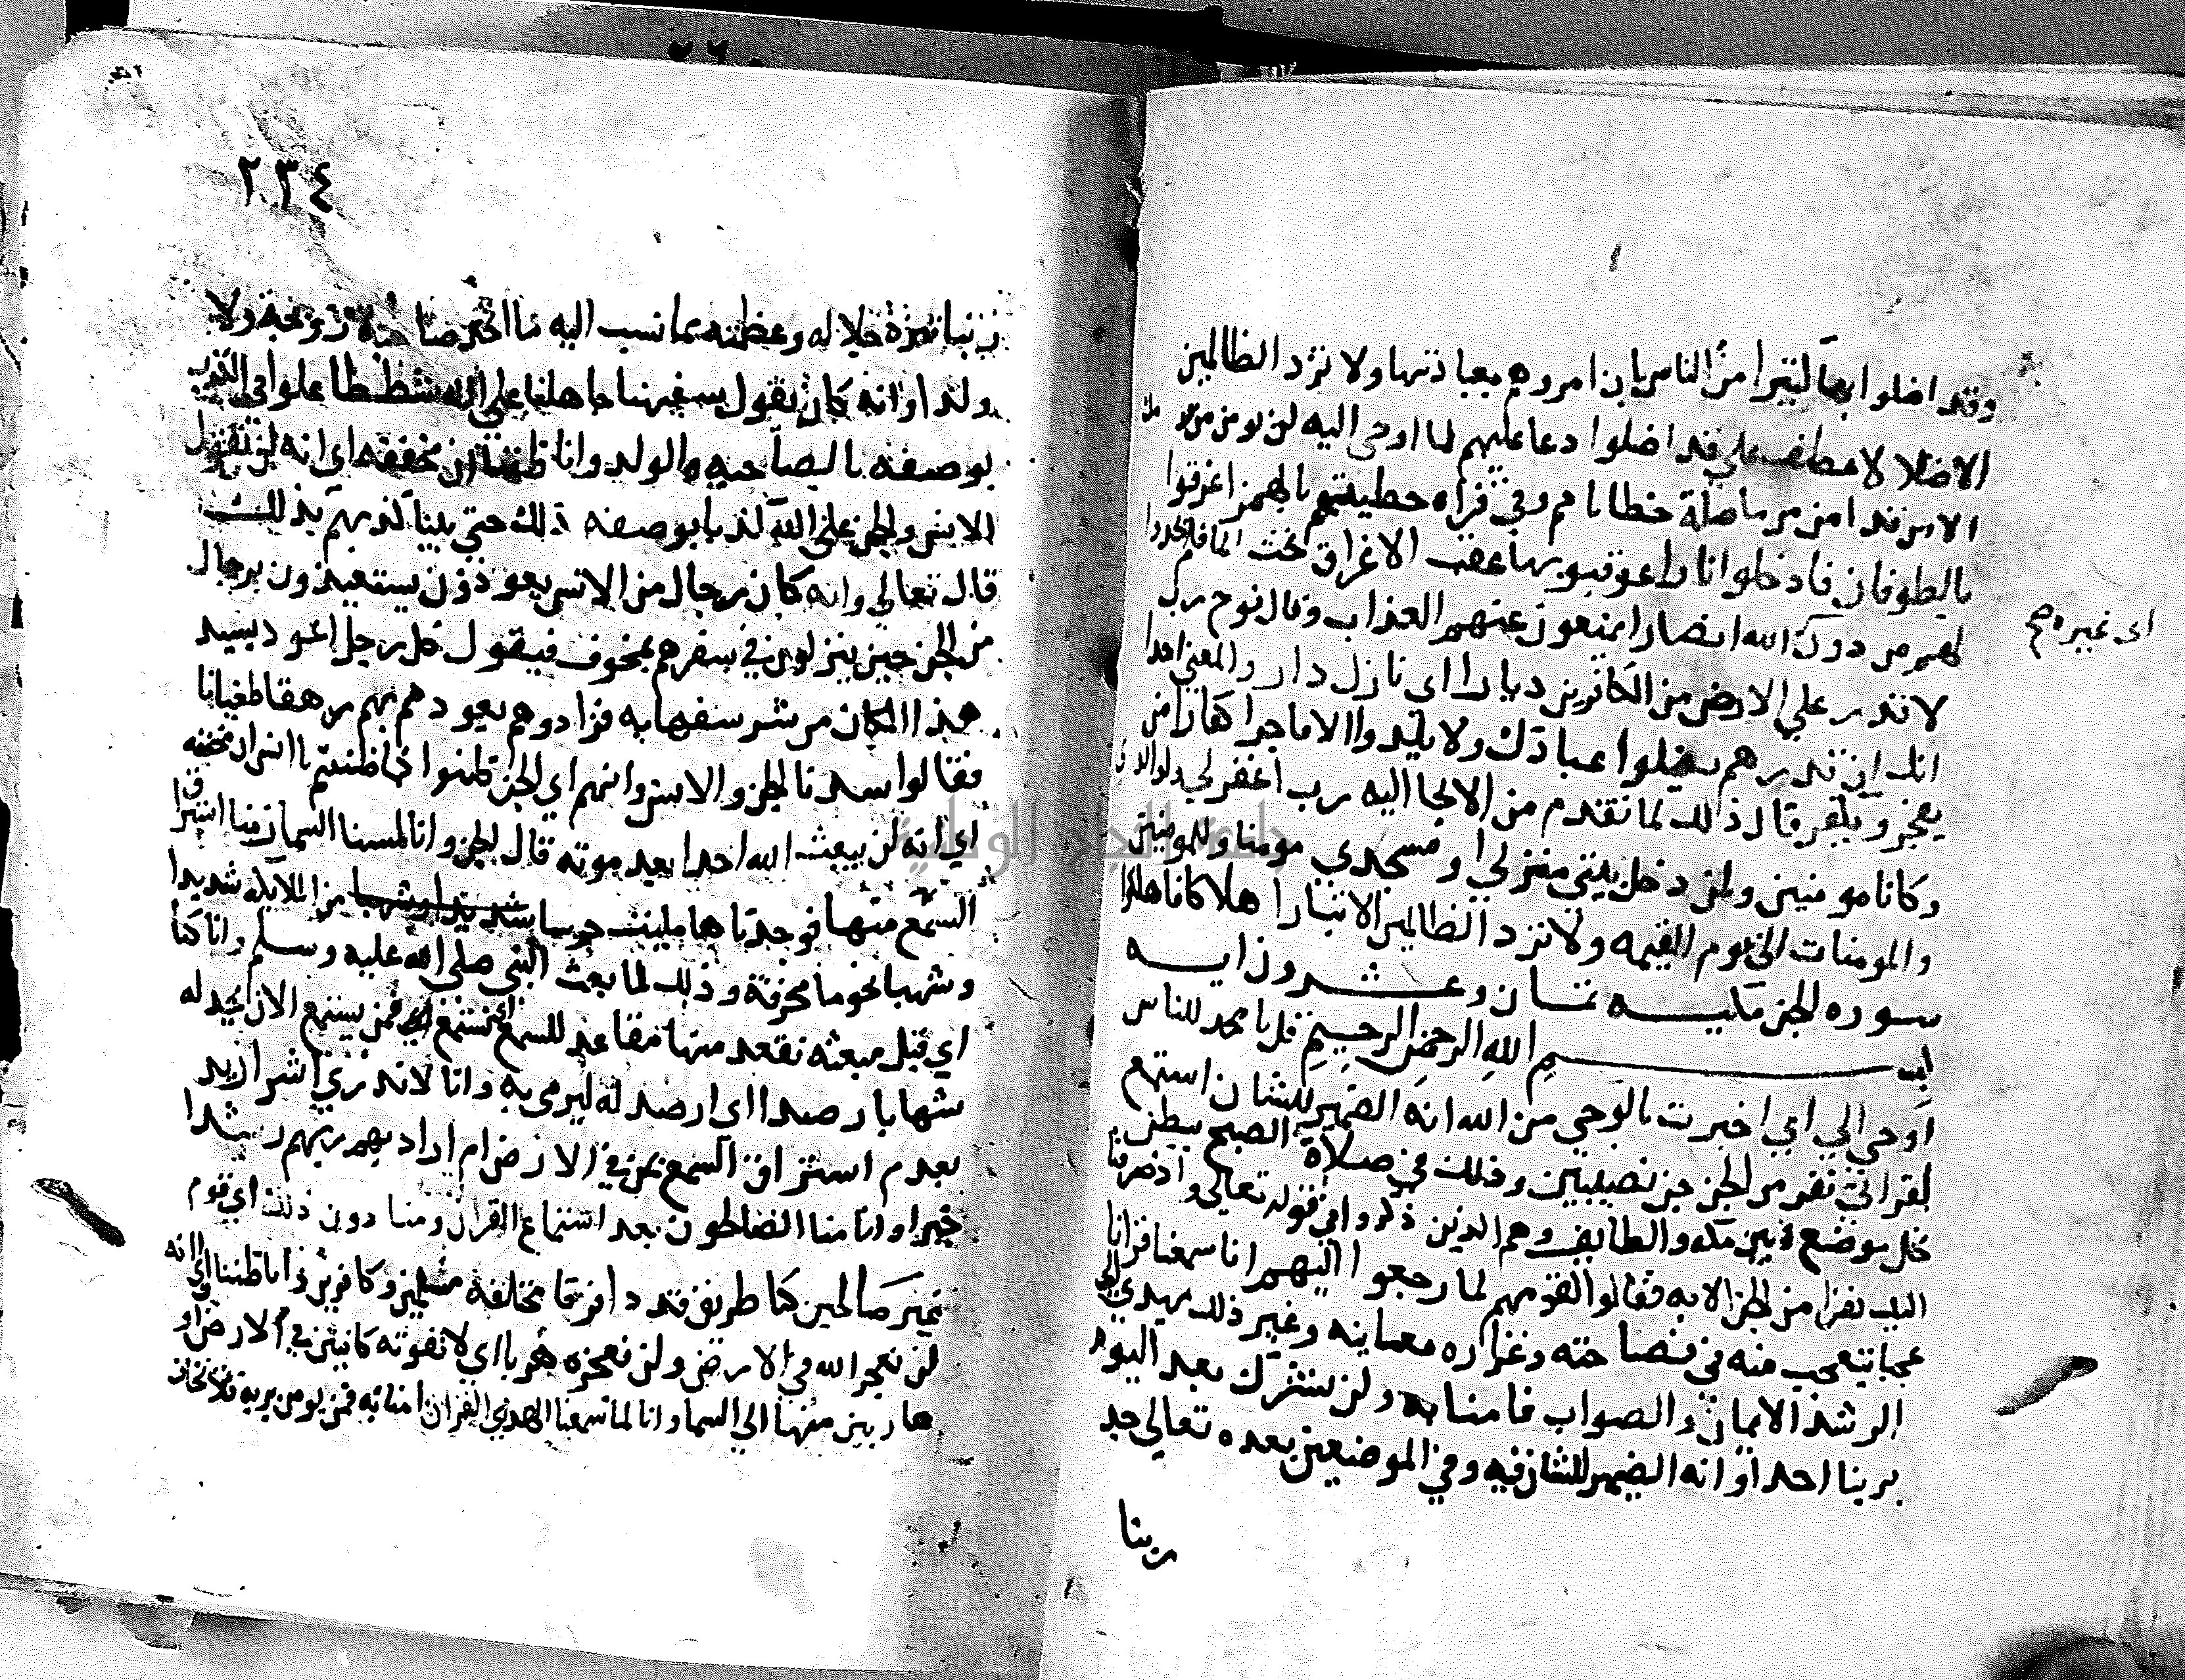 وقد اضلوا بها كثيرا من الناس بان امروهم بعبادتها ولا تزد الظالمين
الا ضلالا عطف على قد اضلوا دعا عليهم لما اوحى اليه لن يومن من قومك
الا من قد امن مما ما صلة خطاياهم وفي قراه خطيئتهم بالهمز اغرقوا
بالطوفان فادخلوا نارا عوقبوا بها عقب الاغراق تحت الما فلم يجدوا
لهم من دون الله انصارا يمنعون عنهم العذاب وقال نوح رب
اى غيره صح
لا تذر على الارض من الكافرين ديارا اى نازل دار والمعنى احدا
انك ان تذرهم يضلوا عبادك ولا يلدوا الا فاجرا كفارا من
يفجر ويكفر قال ذلك لما تقدم من الايحا اليه رب اغفر لي ولوالدي
وكانا مومنين ولمن دخل بيتي منزلي او مسجدي مومنا وللمومنين
والمومنات الى يوم القيمه ولا تزد الظالمين الا تبارا هلاكا فاهلكوا
سوره الجن مكيه ثمان وعشرون ايه
بسم الله الرحمن الرحيم قل يا محمد للناس
اوحي الي اي اخبرت بالوحي من الله انه الضمير للشان استمع
لقراتي نفر من الجن جن نصيبين وذلك في صلاة الصبح ببطن
نخل موضع بين مكه والطايف وهم الذين ذكروا في قوله تعالى واذ صرفنا
اليك نفرا من الجن الايه فقالوا لقومهم لما رجعوا اليهم انا سمعنا قرانا
عجبا يتعجب منه في فصاحته وغزاره معانيه وغير ذلك يهدي الى
الرشد الايمان والصواب فامنا به ولن نشرك بعد اليوم
بربنا احدا وانه الضمير للشان فيه وفي الموضعين بعده تعالى جد
ربنا
٢٣٤
ربنا تنزه جلاله وعظمته عما نسب اليه ما اتخذ صاحبة زوجة ولا
ولدا وانه كان يقول سفيهنا جاهلنا على الله شططا غلوا في الكذب
بوصفه بالصاحبه والولد وانا ظننا ان مخففه اي انه لن تقول
الانس والجن على الله كذبا بوصفه ذلك حتى بينا كذبهم بذلك
قال تعالي وانه كان رجال من الانس يعوذون يستعيذون برجال
من الجن حين ينزلون في سفرهم بمخوف فيقول كل رجل اعوذ بسيد
هذا المكان من شر سفهايه فزادوهم بعوذهم بهم رهقا طغيانا
فقالوا سدنا الجن والانس وانهم اي الجن ظنوا كما ظننتم يا انس ان مخففه
اي انه لن يبعث الله احدا بعد موته قال الجن وانا لمسنا السما رمنا استراق
السمع منها فوجدناها مليت حرسا من الملايكه شديدا
وشهبا نجوما محرقة وذلك لما بعث النبي صلى الله عليه وسلم وانا كنا
اي قبل مبعثه نقعد منها مقاعد للسمع اي نستمع فمن يستمع الان يجد له
شهابا رصدا اى ارصد له ليرمى به وانا لا ندري اشر اريد
بعدم استراق السمع بمن في الارض ام اراد بهم ربهم رشدا
خيرا وانا منا الصالحون بعد استماع القران ومنا دون ذلك اي قوم
غير صالحين كنا طرايق قددا فرقا مختلفة مسلمين وكافرين وانا ظننا اي انه
لن نعجز الله في الارض ولن نعجزه هربا اي لا نفوته كاينين في الارض او
هاربين منها الى السما وانا لما سمعنا الهدي القران امنا به فمن يومن بربه فلا يخاف